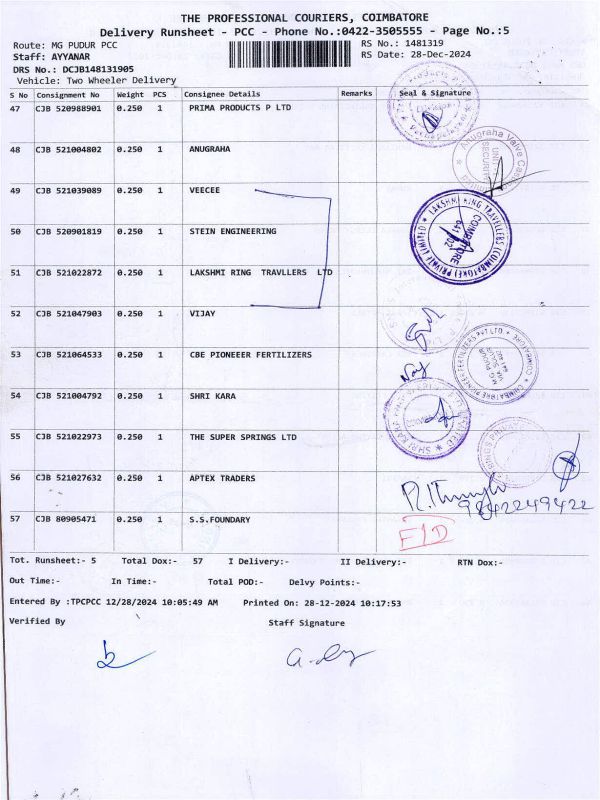 THE PROFESSIONAL COURIERS, COIMBATORE
Delivery Runsheet - PCC - Phone No.:0422-3505555 - Page No.:5
Route: MG PUDUR PCC RS No.: 1481319
Staff: AYYANAR RS Date: 28-Dec-2024
DRS No.: DCJB148131905
Vehicle: Two Wheeler Delivery
S No Consignment No Weight PCS Consignee Details Remarks Seal & Signature
47 CJB 520988901 0.250 1 PRIMA PRODUCTS P LTD
48 CJB 521004802 0.250 1 ANUGRAHA
Anugraha Valve
SECURITY
49 CJB 521039089 0.250 1 VEECEE
50 CJB 520901819 0.250 1 STEIN ENGINEERING
LAKSHMI RING TRAVELLERS (COIMBATORE) PRIVATE LIMITED
COIMBATORE
51 CJB 521022872 0.250 1 LAKSHMI RING TRAVLLERS LTD
52 CJB 521047903 0.250 1 VIJAY
53 CJB 521064533 0.250 1 CBE PIONEEER FERTILIZERS
COIMBATORE PIONEER FERTILIZERS PVT LTD
M.G. PUDUR
54 CJB 521004792 0.250 1 SHRI KARA
SHRI KARA
55 CJB 521022973 0.250 1 THE SUPER SPRINGS LTD
56 CJB 521027632 0.250 1 APTEX TRADERS
9842249422
57 CJB 80905471 0.250 1 S.S.FOUNDARY
F/D
Tot. Runsheet:- 5 Total Dox:- 57 I Delivery:- II Delivery:- RTN Dox:-
Out Time:- In Time:- Total POD:- Delvy Points:-
Entered By :TPCPCC 12/28/2024 10:05:49 AM Printed On: 28-12-2024 10:17:53
Verified By Staff Signature